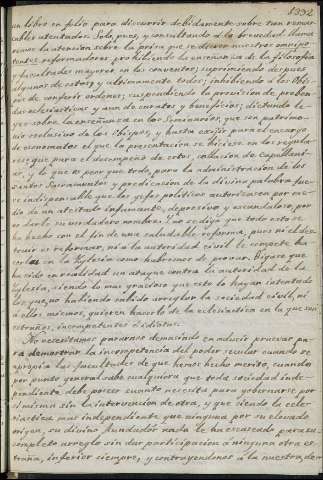 1392
un libro en folio para discurrir debidamente sobre tan remarcables atentados. Solo, pues, y consultando á la brevedad, llamaremos la atencion sobre la prisa que se dieron nuestros omnipotentes reformadores, prohibiendo la enseñanza de la filosofia
y facultades mayores en los conventos; suprimiendo despues
algunos de estos, y ultimamente todos; inhibiendo á los Obispos de conferir ordenes; suspendiendo la provision de prebendas eclesiasticas y aun de curatos y beneficios; dictando leyes sobre la enseñanza en los Seminarios, que son patrimonio esclusivo de los Obispos; y hasta exijir para el encargo
de economatos el que la presentacion se hiciese en los regulares que para el desempeño de estos, colacion de capellanias, y lo que es peor que todo, para la administracion de los
santos Sacramentos y predicacion de la divina palabra fuese indispensable que los gefes politicos autorizasen por medio de un atestado infamante, depresivo y escandaloso, por
no darle su verdadero nombre. Y no se diga que todo esto se
ha hecho con el fin de una saludable reforma, pues ni el destruir es reformar, ni á la autoridad civil le compete hacerlas en la Yglesia como habremos de provar. Digase que
ha sido en realidad un ataque contra la autoridad de la
Yglesia, siendo lo mas gracioso que esto lo hayan intentado
los que, no habiendo sabido arreglar la sociedad civil, ni
á ellos mismos, quieren hacerlo de la eclesiastica en la que son
estraños, incompetentes é idiotas.
No necesitamos pararnos demasiado en aducir pruevas para demostrar la incompetencia del poder secular cuando se
apropia las facultades de que hemos hecho merito, cuando
por punto general sabe cualquiera que toda sociedad independiente debe poseer cuanto necesita para gobernarse por
si misma sin la intervencion de otra, y que siendo la eclesiastica mas independiente que ninguna por su elevado
origen, su divino fundador nada le ha escaseado para su
completo arreglo sin dar participacion á ninguna otra estraña, inferior siempre, y contrayendonos á la nuestra, de